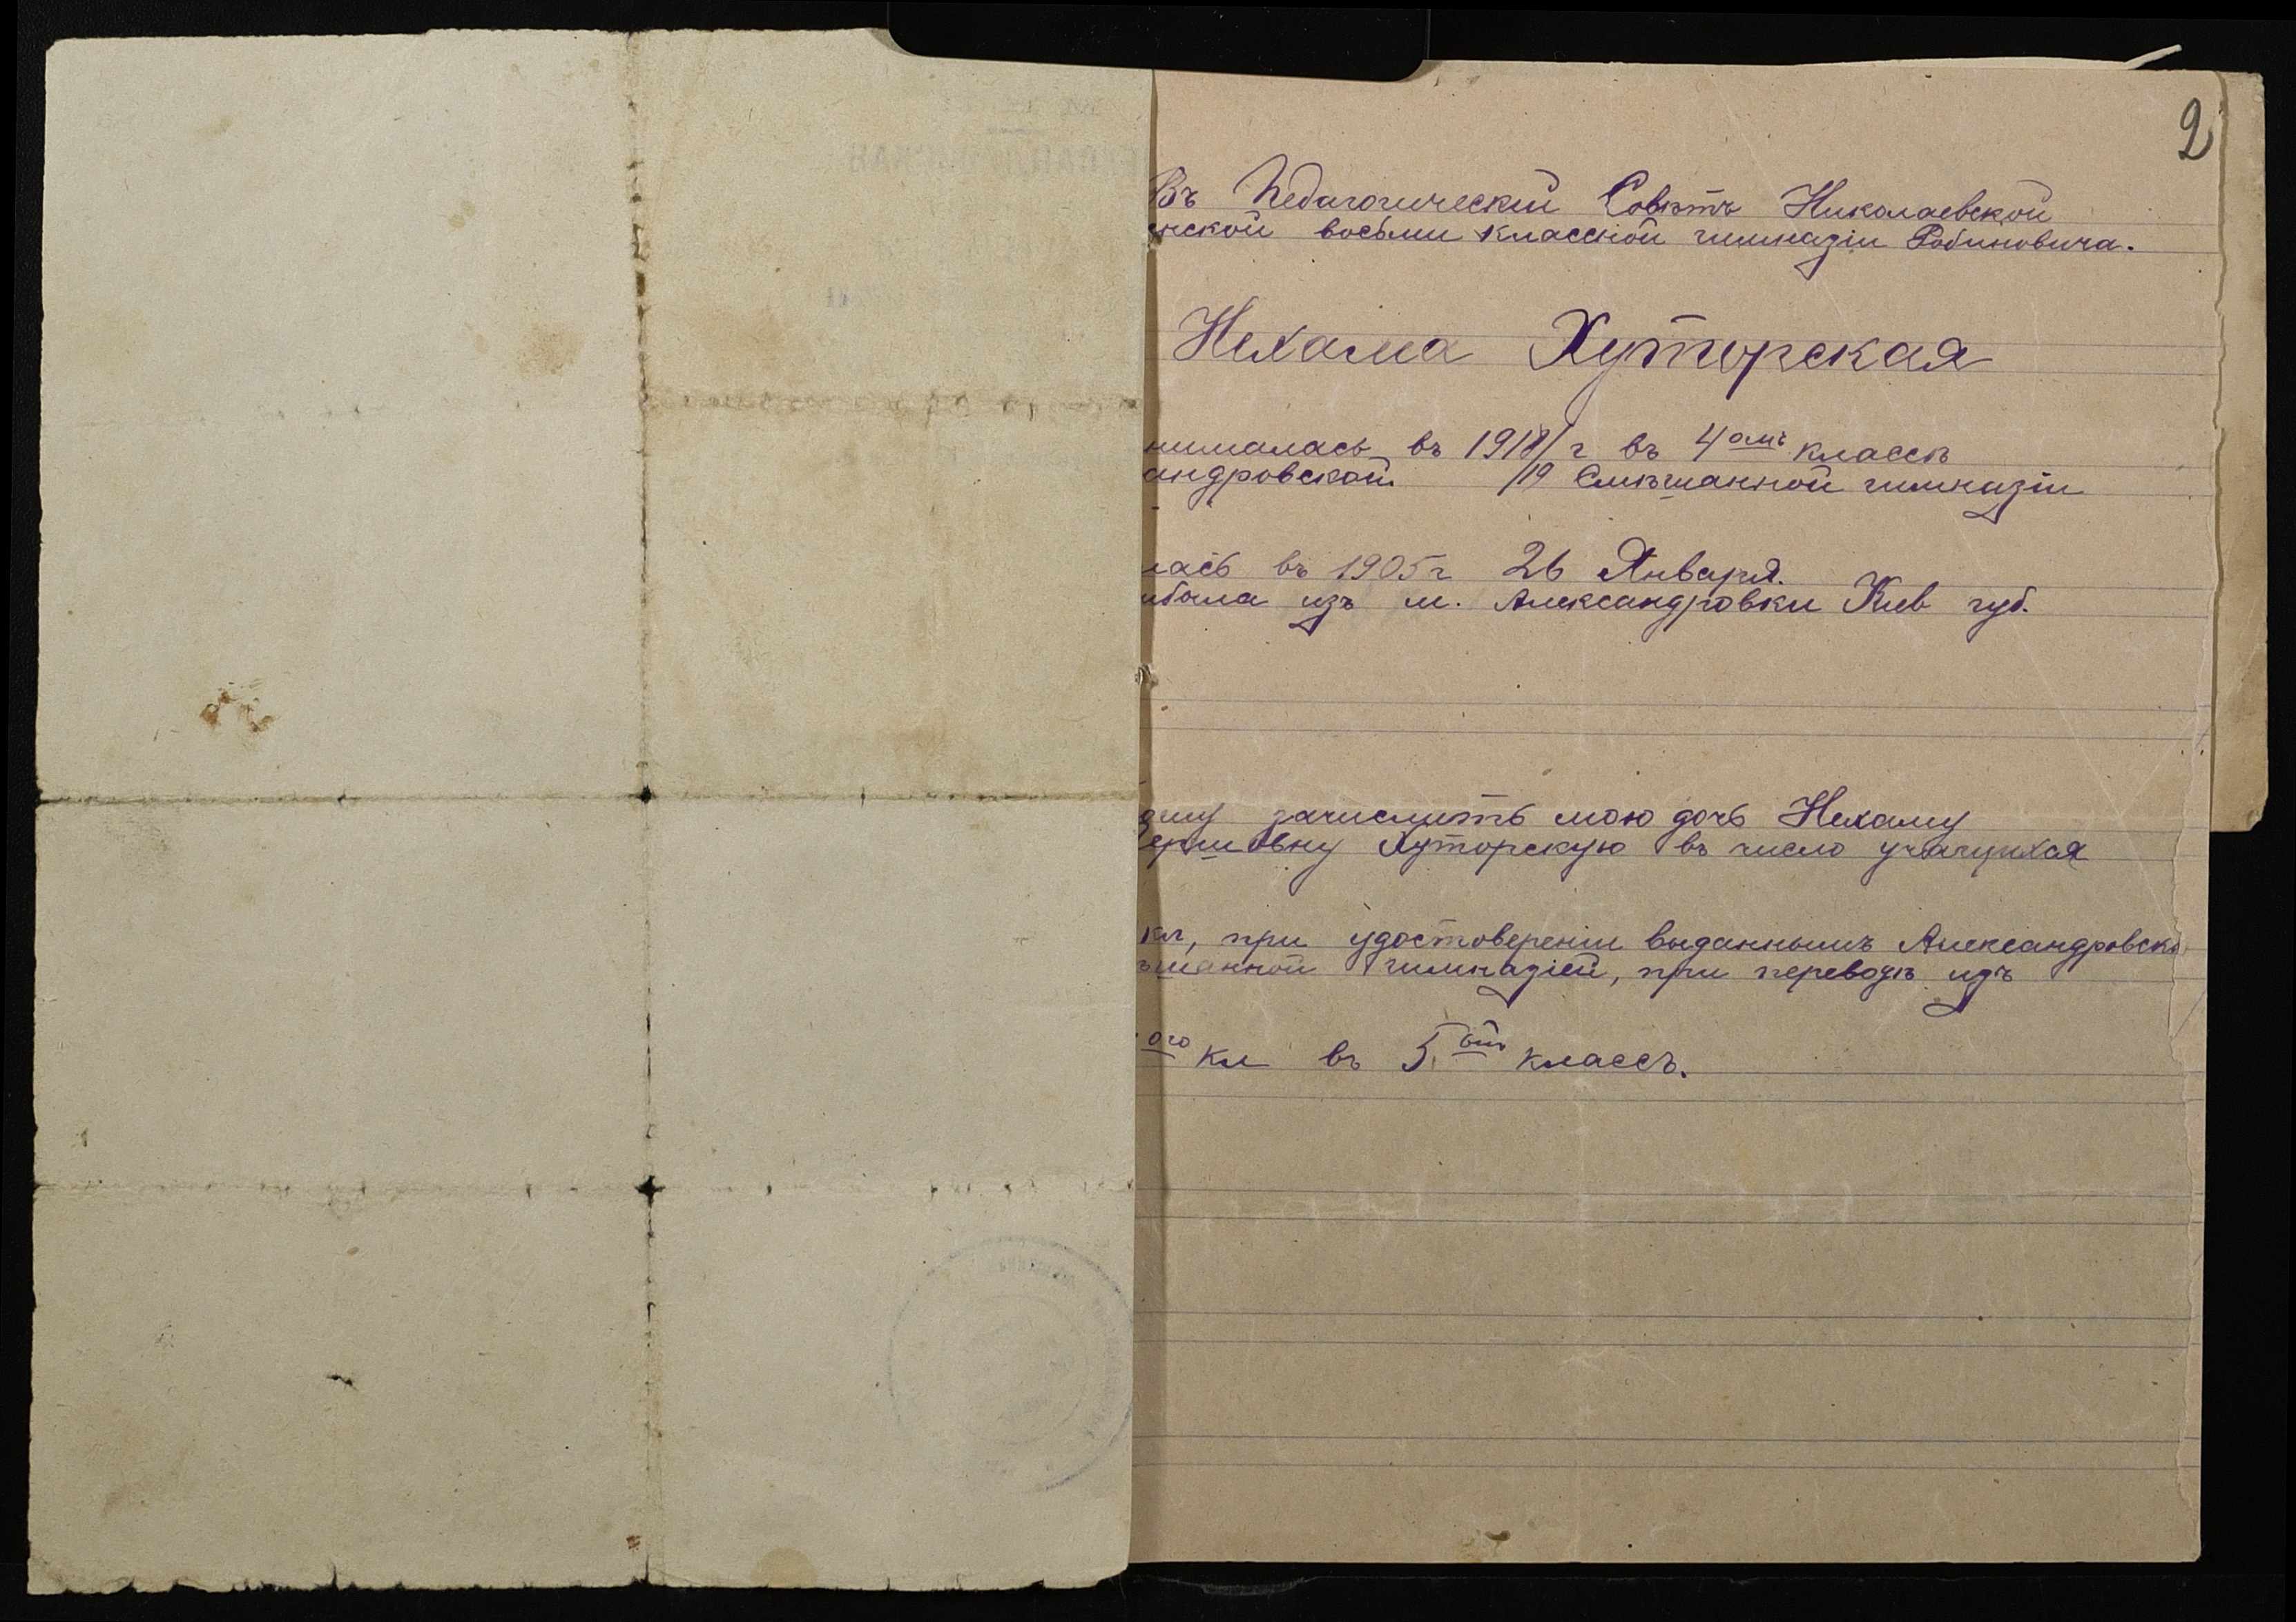 2
Въ Педагогическій Совѣтъ Николаевской
нской восьми классной гимназіи Рабиновича.
Нехама Хуторская
нималась въ 1918/ г въ 4омъ классѣ
андровской /19 Смѣшанной гимназіи
лась въ 1905 г 26 Января.
ибыла изъ м. Александровки Кіев губ.
ошу зачислить мою дочь Нехаму
ершовну Хуторскую въ число учащихся
кл, при удостовереніи выданнымъ Александровско
ѣшанной гимназіей, при переводѣ изъ
ого кл въ 5ый классъ.